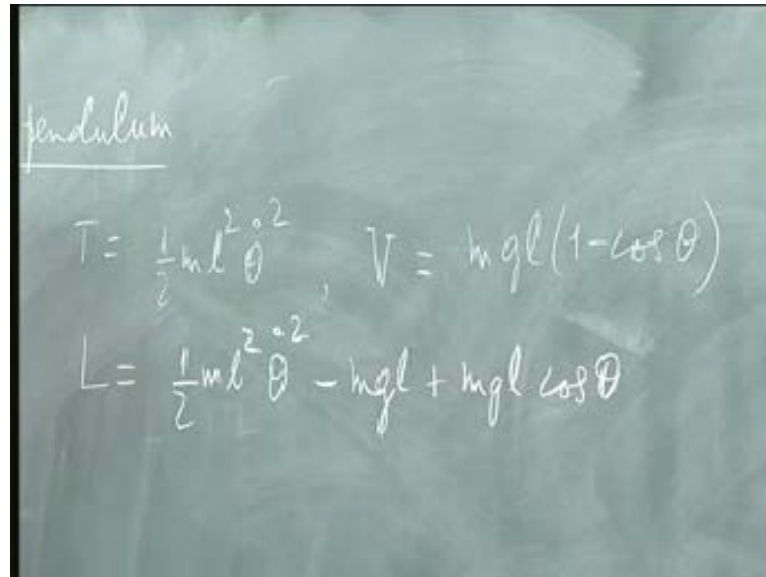 pendulum
T = ½ml²θ̇², V = mgl(1-cos θ)
L = ½ml²θ̇² - mgl + mgl cos θ